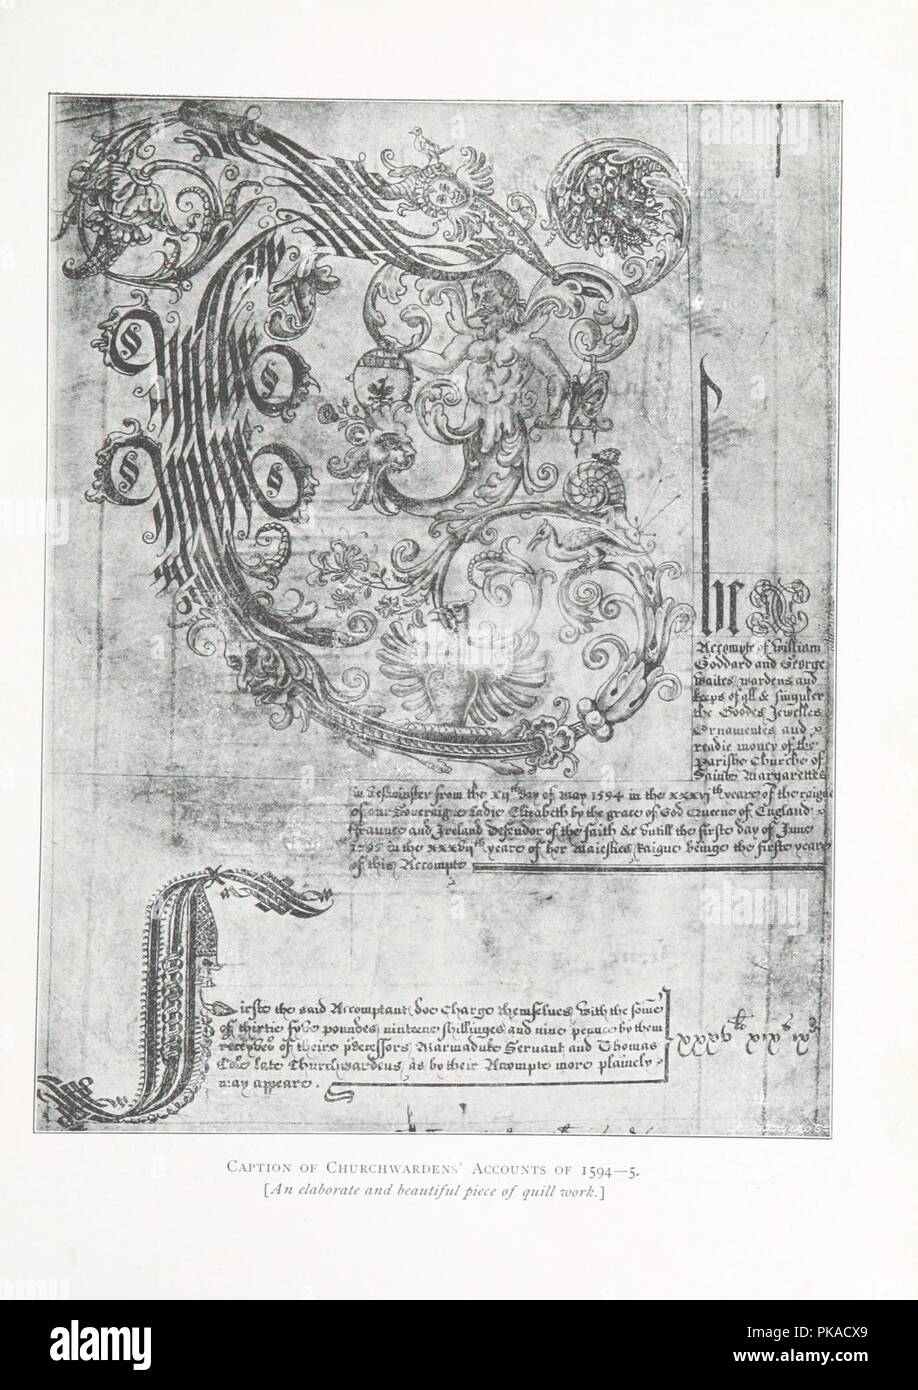 he
Accompte of William
Goddard and George
Waites wardens and
keeps of all & singuler
the Goodes Jewelles
Ornamentes and
readie money of the
Parishe Churche of
Sainte Margarettes
in Westminster from the xijth day of may 1594 in the xxxvjth yeare of the raigne
of our Soveraigne Ladie Elizabeth by the grace of God Queene of England
fraunce and Ireland defendor of the faith &c untill the firste day of June
1595 in the xxxvijth yeare of her Maiesties Raigne beinge the firste yeare
of this Accompte
Firste the said Accomptants doe Charge themselves with the some
of thirtie fyve poundes nineteene shillinges and nine pence by them
receyved of theire predecessors Marmaduke Servant and Thomas
Cole late Churchwardens as by their Accompte more plainely
may appeare.
xxxvli xixs ixd
CAPTION OF CHURCHWARDENS' ACCOUNTS OF 1594—5.
[An elaborate and beautiful piece of quill work.]
alamy
Image ID: PKACX9
www.alamy.com